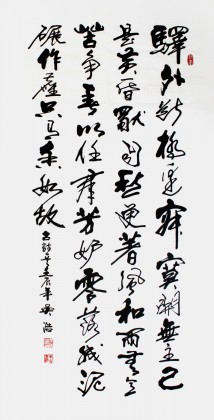 驛外斷橋邊寂寞開無主已
是黃昏獨自愁更著風和雨無意
苦爭春以任群芳妒零落成泥
碾作塵只有香如故
壬辰年